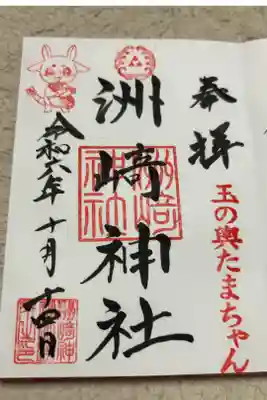 奉拝
玉の輿たまちゃん
洲﨑神社
洲崎神社
令和六年十月十四日